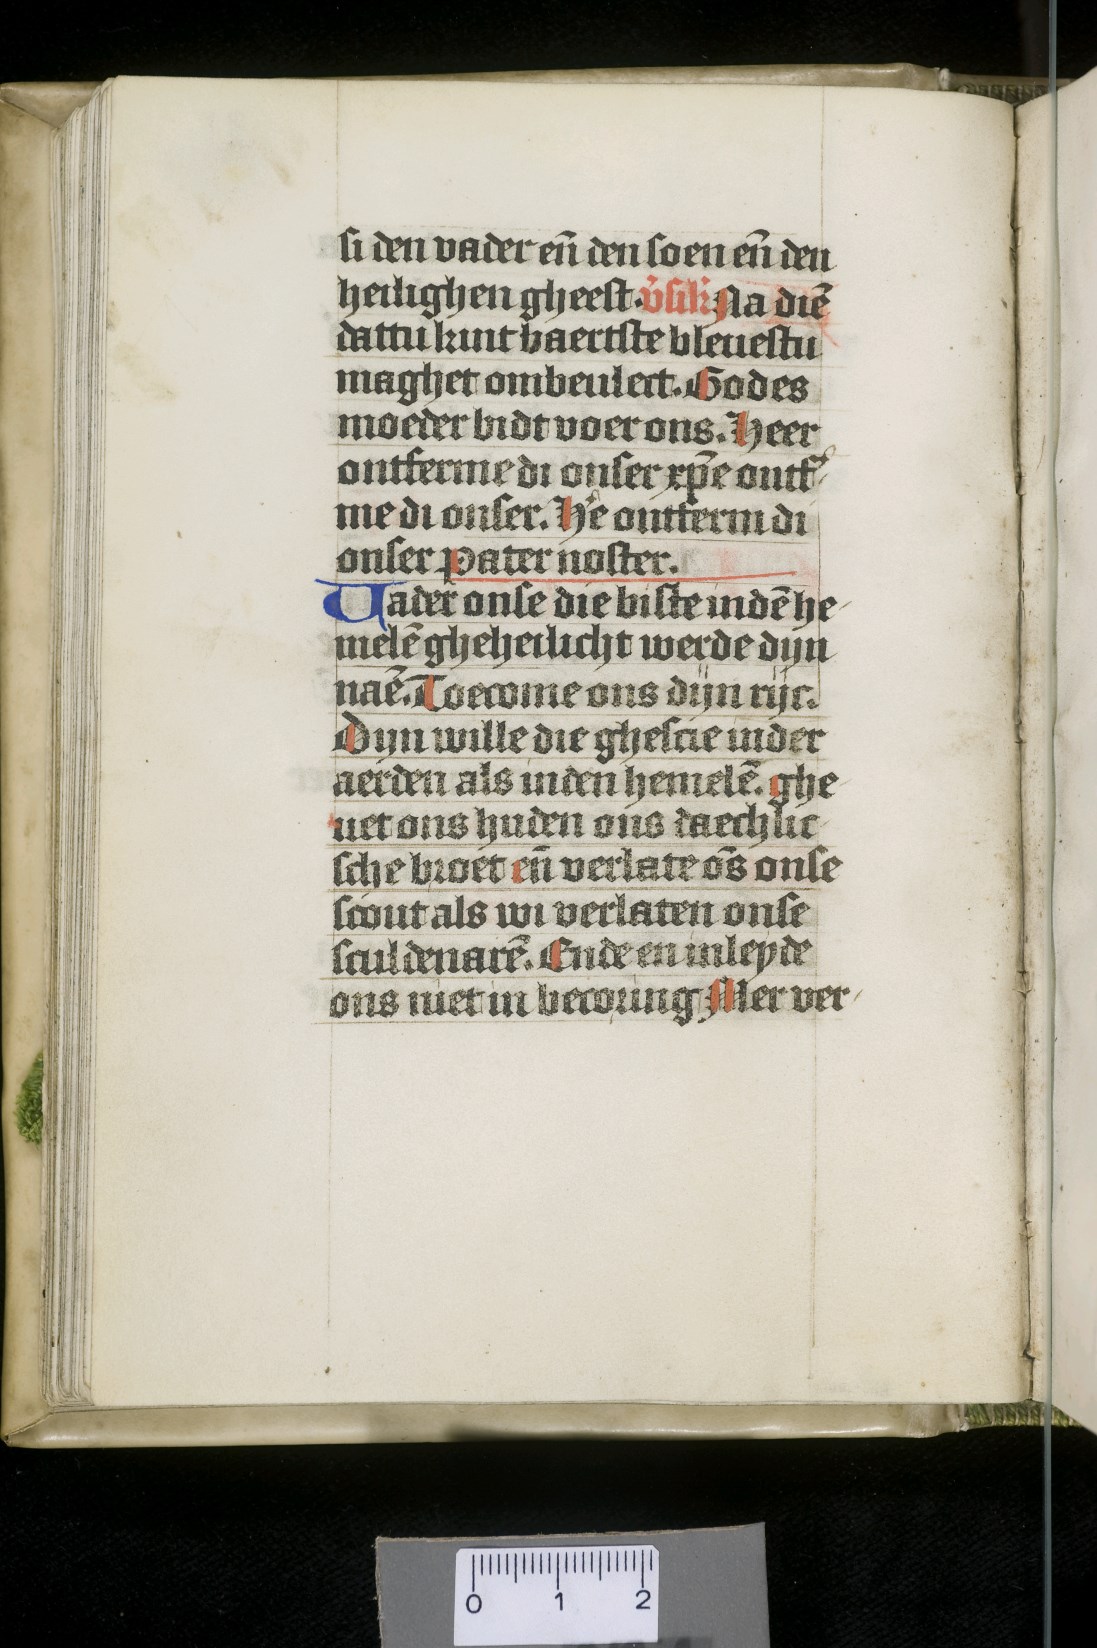 si den vader en̄ den soen en̄ den
heilighen gheest. v̄sik̄ Na diē
dattu kint baertste bleuestu
maghet ombeulect. Godes
moeder bidt voer ons. Heer
ontferme di onser xp̄e ontf᷒
me di onser. H᷒e ontferm di
onser pater noster.
Vader onse die biste in dē he
melē gheheilicht werde dijn
naē. Toecome ons dijn rijc.
Dijn wille die ghescie inder
aerden als inden hemelē. ghe
uet ons huden ons daechlic
sche broet en̄ verlate ōs onse
scout als wi verlaten onse
sculdenarē. Ende en inleyde
ons niet in becoring Mer ver
0 1 2